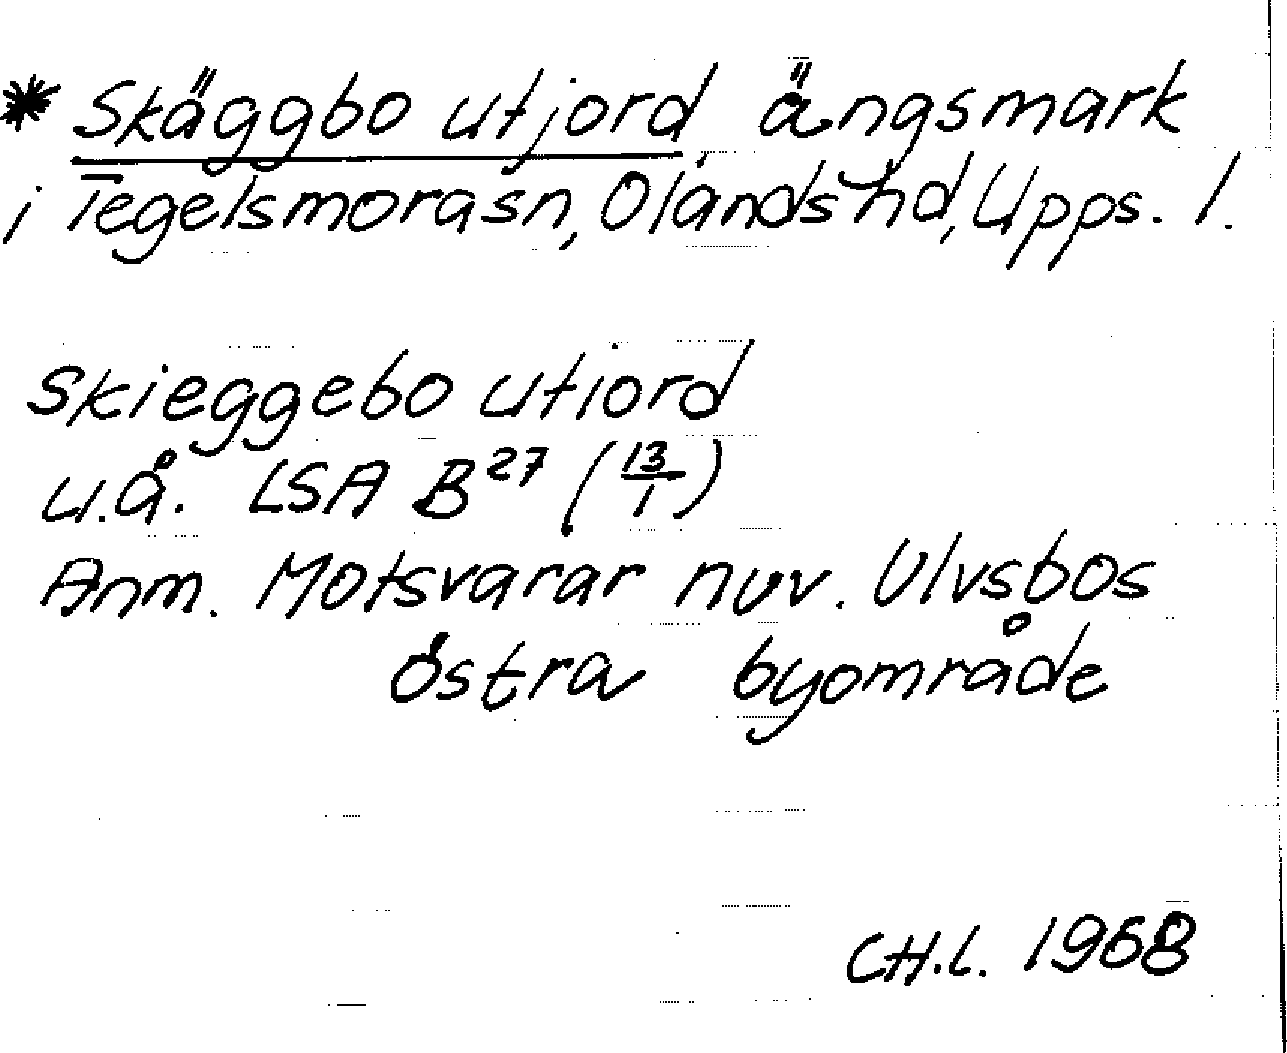 * Skäggbo utjord ängsmark
i Tegelsmorasn, Olands hd, Upps. l.
Skieggebo utiord
u.å. LSA B27 (13/1)
Anm. Motsvarar nuv. Ulvsbos
östra byområde
CH.L. 1968